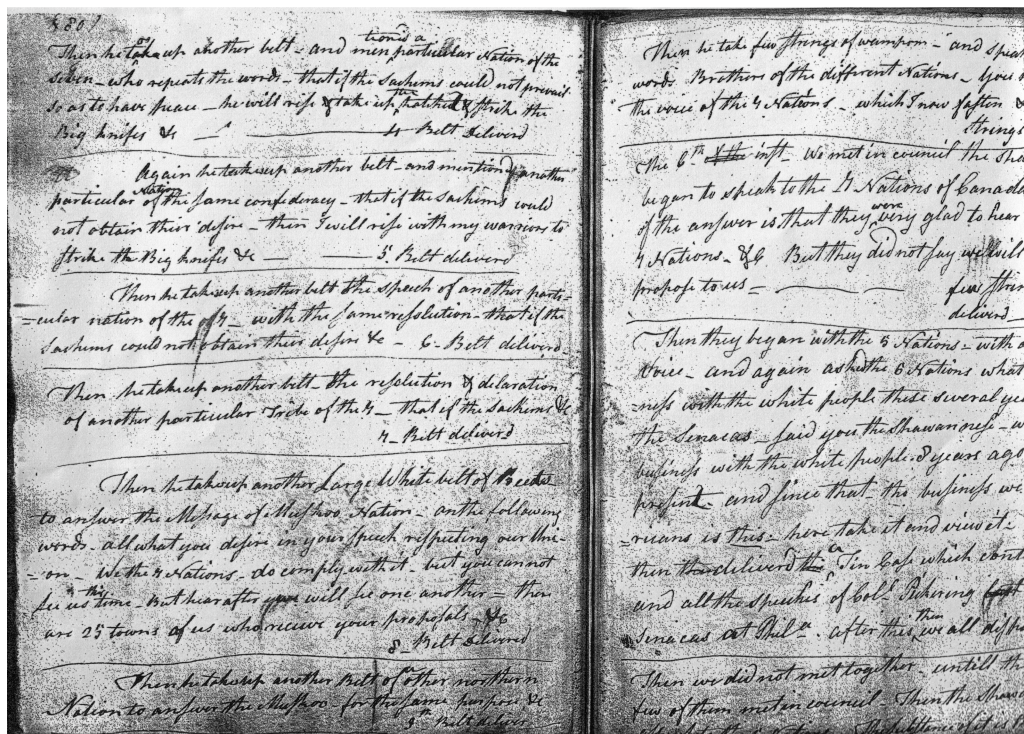 80
Then he takes up another belt - and mentiond a particular Nation of the
seven - who repeats the words - that if the Sachems could not prevail
so as to have peace - he will rise & take up the hatchet & strike the
Big knifes & - 4 Belt deliverd
Again he takes up another belt - and mentiond another
particular Nation of the same confederacy - that if the Sachems could
not obtain their desire - then I will rise with my warriors to
strike the Big knifes &c - 5 Belt deliverd
Then he takes up another belt the speech of another parti-
=cular nation of the of 7 - with the same resolution - that if the
Sachems could not obtain their desire &c - 6 - Belt deliverd -
Then he takes up another belt - the resolution & declaration
of another particular Tribe of the 7 - that if the Sachems &c
7 - Belt deliverd
Then he takes up another Large White belt of
to answer the Message of Muskoo Nation - on the following
words - all what you desire in your speech respecting our Uni-
=on - We the 7 Nations - do comply with it - but you cannot
see us this time - But hear after you will see one another = there
are 25 towns of us who receive your proposals - &c
8 - Belt deliverd
Then he takes up another Belt of other northern
Nation to answer the Muskoo - for the same purpose &c
9th Belt deliv
Then he take few strings of wampom - and speak
words Brothers of the different Nations - you
the voice of the 7 Nations - which I now fasten &
Strings
The 6th & the inst - We met in council the Sha
began to speak to the 7 Nations of Canada
of the answer is that they were very glad to hear
7 Nations - &c But they did not say will
propose to us - few strin
deliverd
Then they began with the 5 Nations - with a
Voice - and again asked the 6 Nations what
=ness with the white people these several yea
the Senacas - said you the Shawannese - w
business with the white people. 3 years ago
present - and since that - the business we
=ricans is this - here take it and view it -
then the deliverd the a Tin Case which cont
and all the speeches of Coll. Pickering
Senacas at Phila. after this then we all dispe
Then we did not met together - untill the
few of them met in council - Then the Shawa